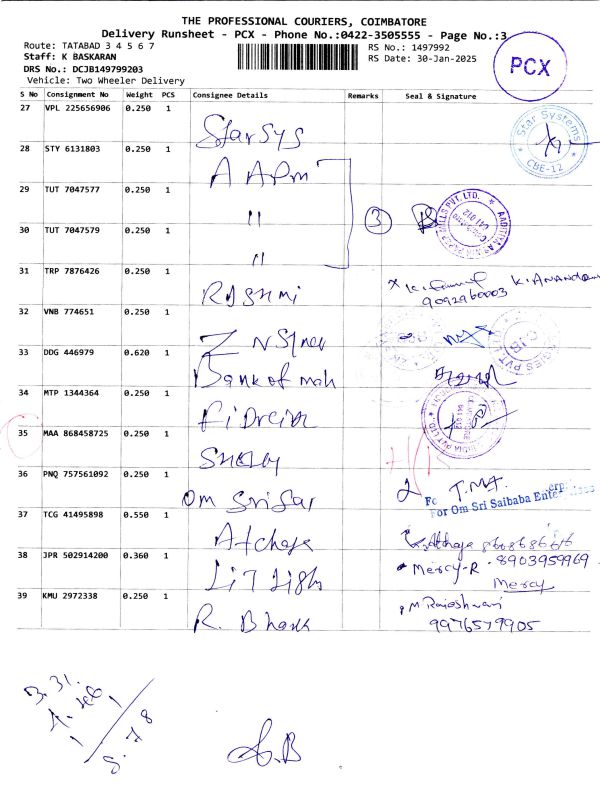 THE PROFESSIONAL COURIERS, COIMBATORE
Delivery Runsheet - PCX - Phone No.:0422-3505555 - Page No.:3
Route: TATABAD 3 4 5 6 7
RS No.: 1497992
Staff: K BASKARAN
RS Date: 30-Jan-2025
DRS No.: DCJB149799203
Vehicle: Two Wheeler Delivery
PCX
S No Consignment No Weight PCS Consignee Details Remarks Seal & Signature
27 VPL 225656906 0.250 1 Star Sys
Star Systems CBE-12
28 STY 6131803 0.250 1
29 TUT 7047577 0.250 1 "
3
30 TUT 7047579 0.250 1 "
31 TRP 7876426 0.250 1 Rashmi
K. ANANDAN
9092960003
32 VNB 774651 0.250 1
33 DDG 446979 0.620 1 Bank of mah
34 MTP 1344364 0.240 1
35 MAA 868458725 0.250 1
36 PNQ 757561092 0.250 1 Om Sri Sai
For Om Sri Saibaba Enterprises
37 TCG 41495898 0.550 1 Atchaya
8608686616
38 JPR 502914200 0.360 1
Mercy-R 8903959969
Mercy
39 KMU 2972338 0.250 1 R. Bhara
M Rajeshwari
9976579905